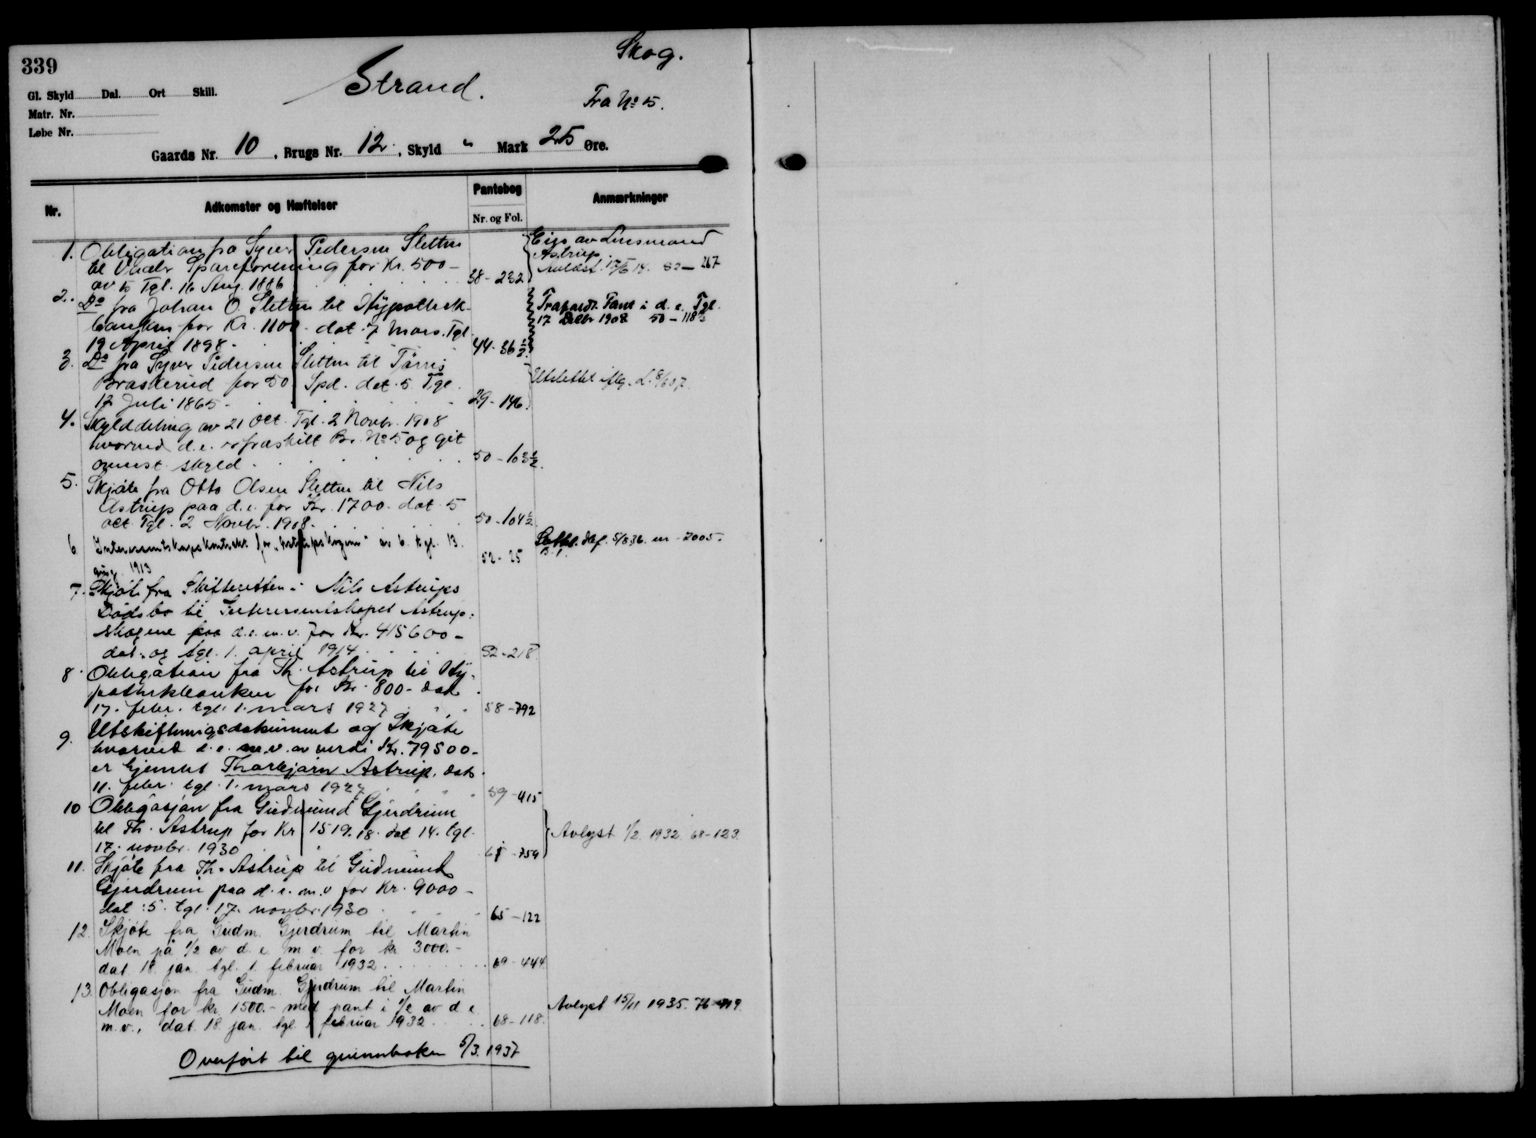 339
Skog.
Strand.
Fra No 5.
Gl. Skyld Dal. Ort Skill.
Matr. Nr.
Løbe Nr.
Gaards Nr. 10, Brugs Nr. 12, Skyld " Mark 25 Øre.
Nr. Adkomster og Hæftelser Pantebog Nr. og Fol. Anmærkninger
1. Obligation fra Syver Pedersen Sletten Eies av Lensmand
til Vaaler Spareforening for Kr. 500 – Astrup
av 15 Tgl. 16 Aug. 1886 38 - 232 52 – 267
2. Do fra Johan O. Sletten til Hypothek- Frafaldt Pant i d. e. Tgl.
banken for Kr. 1100 dat. 7 Mars. Tgl. 17 Decbr 1908 50 – 118
19 April 1898. 44 - 36
3. Do fra Syver Pedersen Sletten til Tørris
Braskerud for 50 Spd. dat. 5 Tgl. Utslettet
12 Juli 1865 29 - 146
4. Skylddeling av 21 Oct. Tgl. 2 Novbr. 1908
hvorved d. e. er fraskilt Br. No 5 og git
skyld. 50 - 103
5. Skjøte fra Otto Olsen Sletten til Nils
Astrup paa d. e. for Kr. 1700 dat. 5
oct Tgl. 2 Novbr. 1908. 50 - 104 1/2
6. Interessentskapskontrakt for "Astrupskogene" av 6. tgl. 13.
1913 52 - 25
7. Skjøte fra Skifteretten i Nils Astrups
Dødsbo til Interessentskapet Astrup-
skogene paa d. e. m. v. for Kr. 415600 –
dat. og tgl. 1. april 1914 52 - 218
8. Obligation fra Th. Astrup til Hy-
pothekbanken for Kr. 800 - dat.
17. febr. tgl. 1. mars 1927 58 - 792
9. Utskiftningsdokument og Skjøte
hvorved d. e. m. v. av verdi Kr. 79500 -
er hjemlet Thorbjørn Astrup, dat.
11. febr. tgl. 1. mars 1927 59 - 415
10 Obligasjon fra Gudmund Gjerdrum
til Th. Astrup for Kr 1519.18. dat 14. tgl. Avlyst 1/2 1932. 68 - 123.
17. novbr. 1930 61 - 759
11. Skjøte fra Th. Astrup til Gudmund
Gjerdrum paa d. e. m. v for Kr. 9000 –
dat. 5. tgl. 17. novbr. 1930 65 - 122
12. Skjøte fra Gudm. Gjerdrum til Martin
Moen på 1/2 av d. e. m. v. for kr 3000. –
dat 18 jan. tgl. 1. februar 1932. 69 - 444
13. Obligasjon fra Gudm. Gjerdrum til Martin
Moen for kr. 1500. – med pant i 1/2 av d e Avlyst 15/11 1935. 76 - 719
m. v., dat. 18 jan. tgl 1 februar 1932 68 - 118.
Overført til grunnboken 5/3. 1937